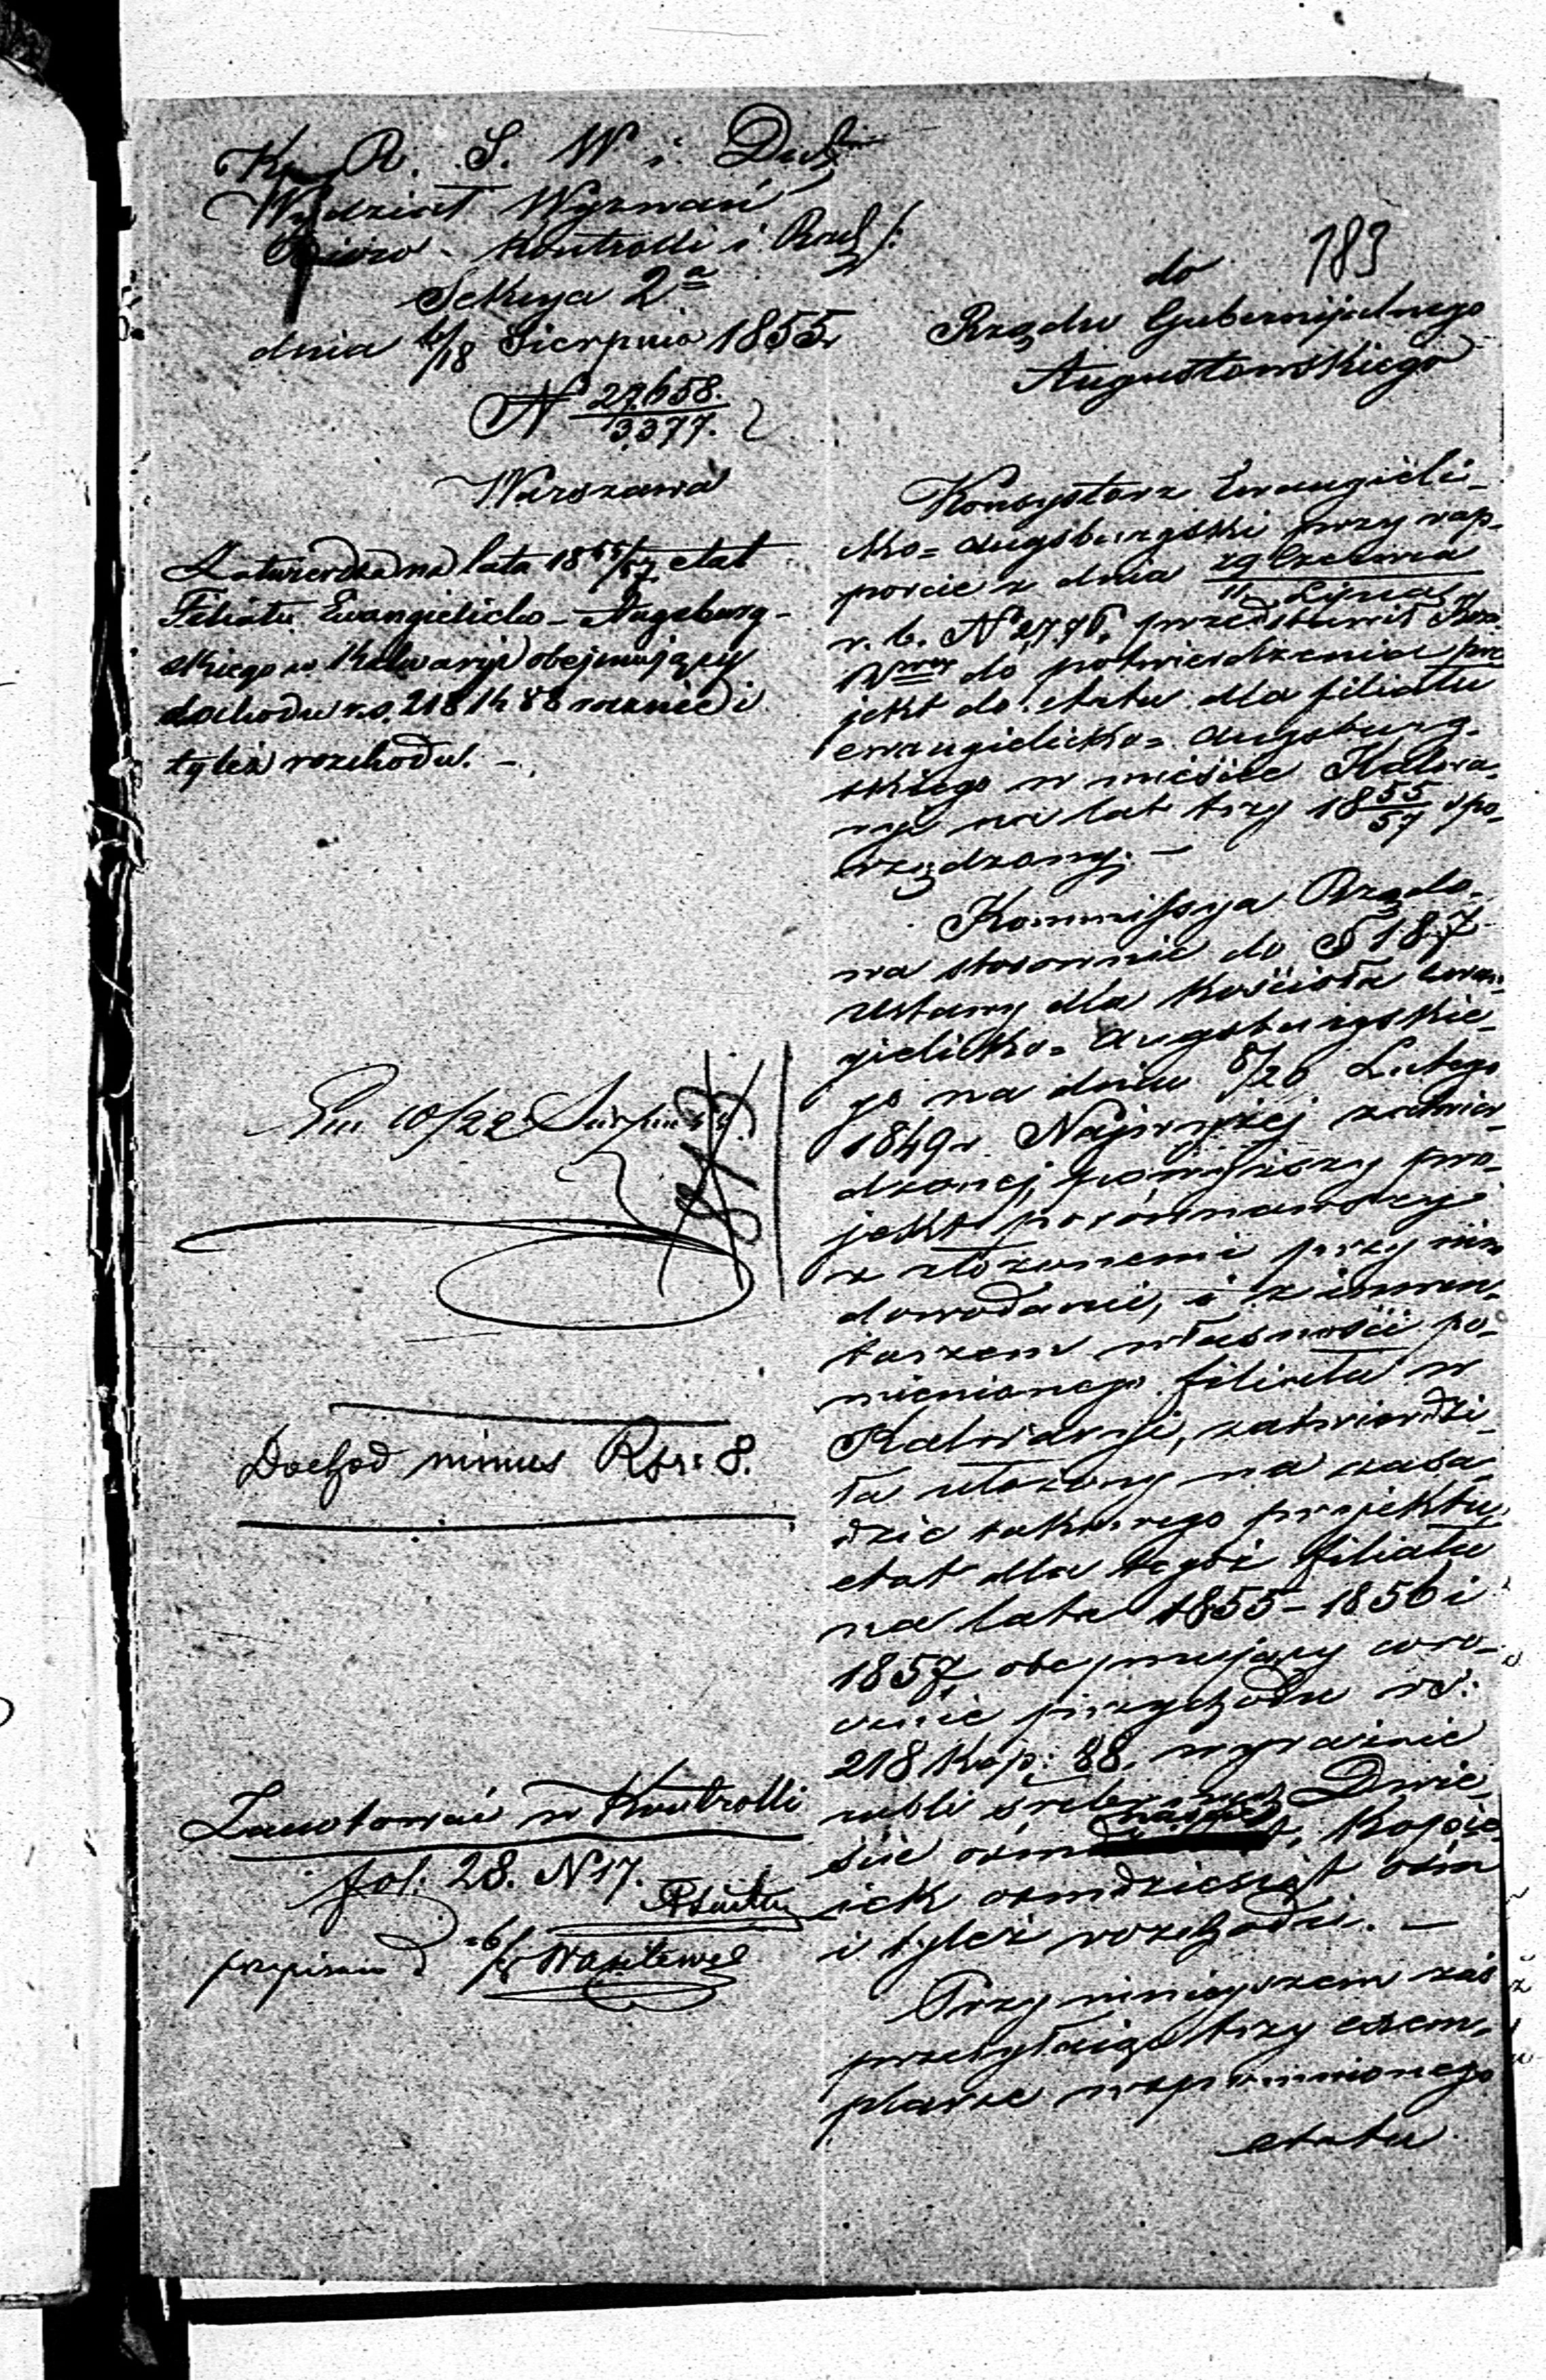 K. R. S. W. i Duch
Wydział Wyznań
Biuro - Kontrolli i Rach:
Sekcya 2a
dnia 6/18 Sierpnia 1855
No 27658.
3377.
Warszawa
Zatwierdza na lata 1855/57 etat
Filiału Ewangielicko-Augsburg-
skiego w Kalwaryi obejmujący
dochodu rs. 218 k 88 rocznie i
tyleż rozchodu. -
10/22 Sierpnia
Dochód minus Rsr: 8.
Zanotować w Kontrolli
fol. 28. N 17.
przepisano
183
do
Rządu Gubernijalnego
Augustowskiego
Konsystorz Ewangieli-
cko=Augsburgski przy rap-
porcie z dnia 29 Czerwca
11 Lipca
r. b. No 2776, przedstawił
do potwierdzenia pro
jekt do etatu dla filiału
ewangielicko=Augsburg-
skiego w mieście Kalwa-
ryi na lat trzy 1855/57 spo-
rządzony. -
Kommissya Rządo-
wa stosownie do § 187
Ustawy dla Kościoła Ewan-
gielicko=Augsburgskie-
go na dniu 8/20 Lutego
1849 r. Najwyżej zatwier-
dzonej, powyższy pro-
jekt porównawszy
z złożonemi przy nim
dowodami, i z inwen-
tarzem własności po-
mienionego filiału w
Kalwaryi, zatwierdzi-
ła ułożony na zasa-
dzie takowego projektu,
etat dla tegoż filiału
na lata 1855-1856 i
1857, obejmujący coro-
cznie przychodu rs:
218 kop: 88. wyraźnie
rubli srebrnych Dwie-
ście ośmnaście, Kopie-
iek ośmdziesiąt ośm
i tyleż rozchodu. -
Przy niniejszem zaś
przesyłając trzy exem-
plarze wspomnionego
etatu